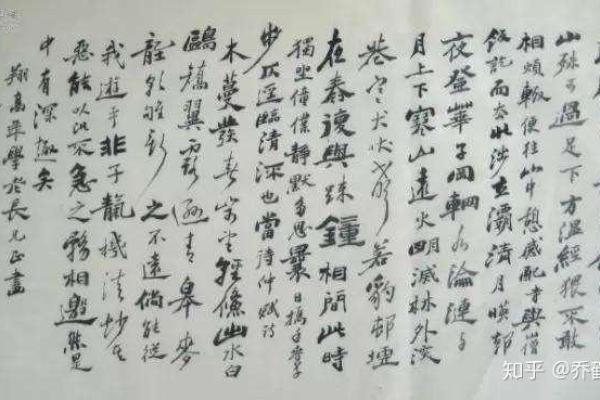 山殊可過足下方温經猥不敢
相煩輒便往山中憩感配寺與僧
飯訖而去北涉玄灞清月映郭
夜登華子岡輞水淪漣與
月上下寒山遠火明滅林外深
巷寒犬吠聲若豹邨墟
舂復與疎鐘相間此時
獨坐僮僕静默多思曩日攜手
步仄徑臨清流也當
木蔓發春山可望輕鯈出水白
鷗矯翼露濕青皋麥
隴朝雊斯之不遠倘能從
我遊乎非子機清妙者
惡能以此不急之務相邀然是
中有深趣矣
翔高學於長兄正畫
知乎 @乔